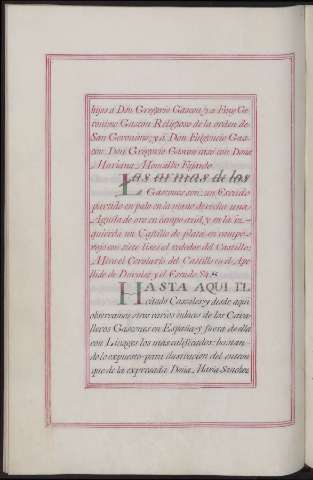 hijos a Dⁿ. Gregorio Gascon, y a Fray Ge-
ronimo Gascon Religioso de la orden de
San Geronimo; y á Don Fulgencio Gas-
con. Don Gregorio Gascon casó con Doña
Mariana Moncallo Fajardo.
Las armas de los
Gascones son: un Escudo
partido en palo en la mano derecha una
Aguila de oro en campo azul, y en la iz-
quierda un Castillo de plata en campo
rojo con siete lises al rededor del Castillo;
del Castillo es el Ape-
llido de
HASTA AQUI EL
citado Cascales; y desde aqui
observamos otros varios enlaces de los Cava-
lleros Gascones en España, y fuera de ella
con Linages los mas calificados: bastan-
do lo expuesto para ilustracion del entron-
que de la expresada Doña Maria Sanchez